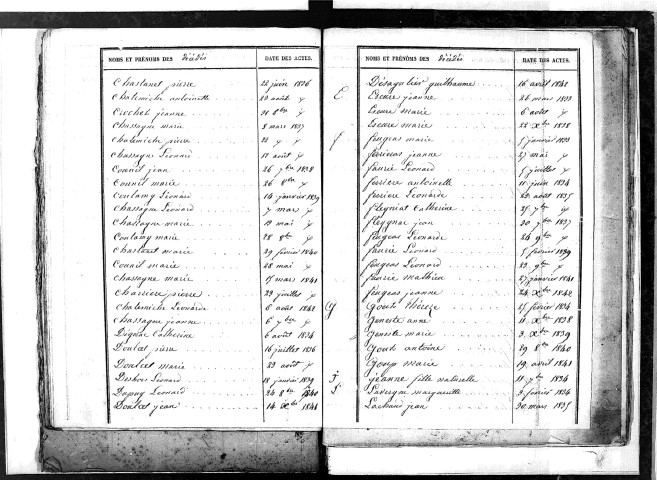 NOMS ET PRÉNOMS DES Décédés DATE DES ACTES.
Chastanet pierre 22 juin 1836
Chalemiche antoinette 22 août
Crochet jeanne 21 8bre
Chassagne marie 8 mars 1837
Chalemiche pierre 22
Chassagne Léonard 18 août
Counil jean 26 7bre 1838
Counil marie 26 8bre
Coulamy Léonard 14 janvier 1839
Chassagne Léonard 7 mars
Chassagne marie 13 mai
Coulamy marie 28 8bre
Chastanet marie 29 février 1840
Counil marie 28 mai
Chassagne marie 17 mars 1841
Charrière pierre 29 juillet
Chalemiche Léonarde 6 août 1841
Chassagne jeanne 6 7bre
Dignac Catherine 6 août 1834
Doulcet pierre 16 juillet 1836
Doulcet marie 23 août
Desbois Léonard 18 janvier 1839
Dupuy Léonard 24 8bre 1840
Doulcet jean 14 Xbre 1841
NOMS ET PRÉNOMS DES Décédés DATE DES ACTES.
Désagulier guilhaume 16 avril 1842
E Escure jeanne 26 mars 1833
Escure marie 6 août
Escure marie 22 Xbre 1838
f feugeas marie 5 janvier 1833
ferrieras jeanne 27 mai
faurie Léonard 5 juillet
ferriere antoinette 11 juin 1834
ferriere Léonard 22 août 1835
fleyniat Catherine 25 7bre
fleygnac jean 20 7bre 1837
feugeas Léonarde 24 9bre
faurie Léonard 5 février 1839
feugeas Léonard 23 9bre
faurie mathieu 27 janvier 1841
feugeas jeanne 24 Xbre 1842
G Gout Thérèze 15 février 1834
Geneste anne 11 Xbre 1838
Geneste marie 3 Xbre 1839
Gout antoine 29 8bre 1840
Goup marie 19 avril 1841
J jeanne fille naturelle 11 7bre 1834
L Lavergne marguerite 3 février 1834
Lachaud jean 30 mars 1835